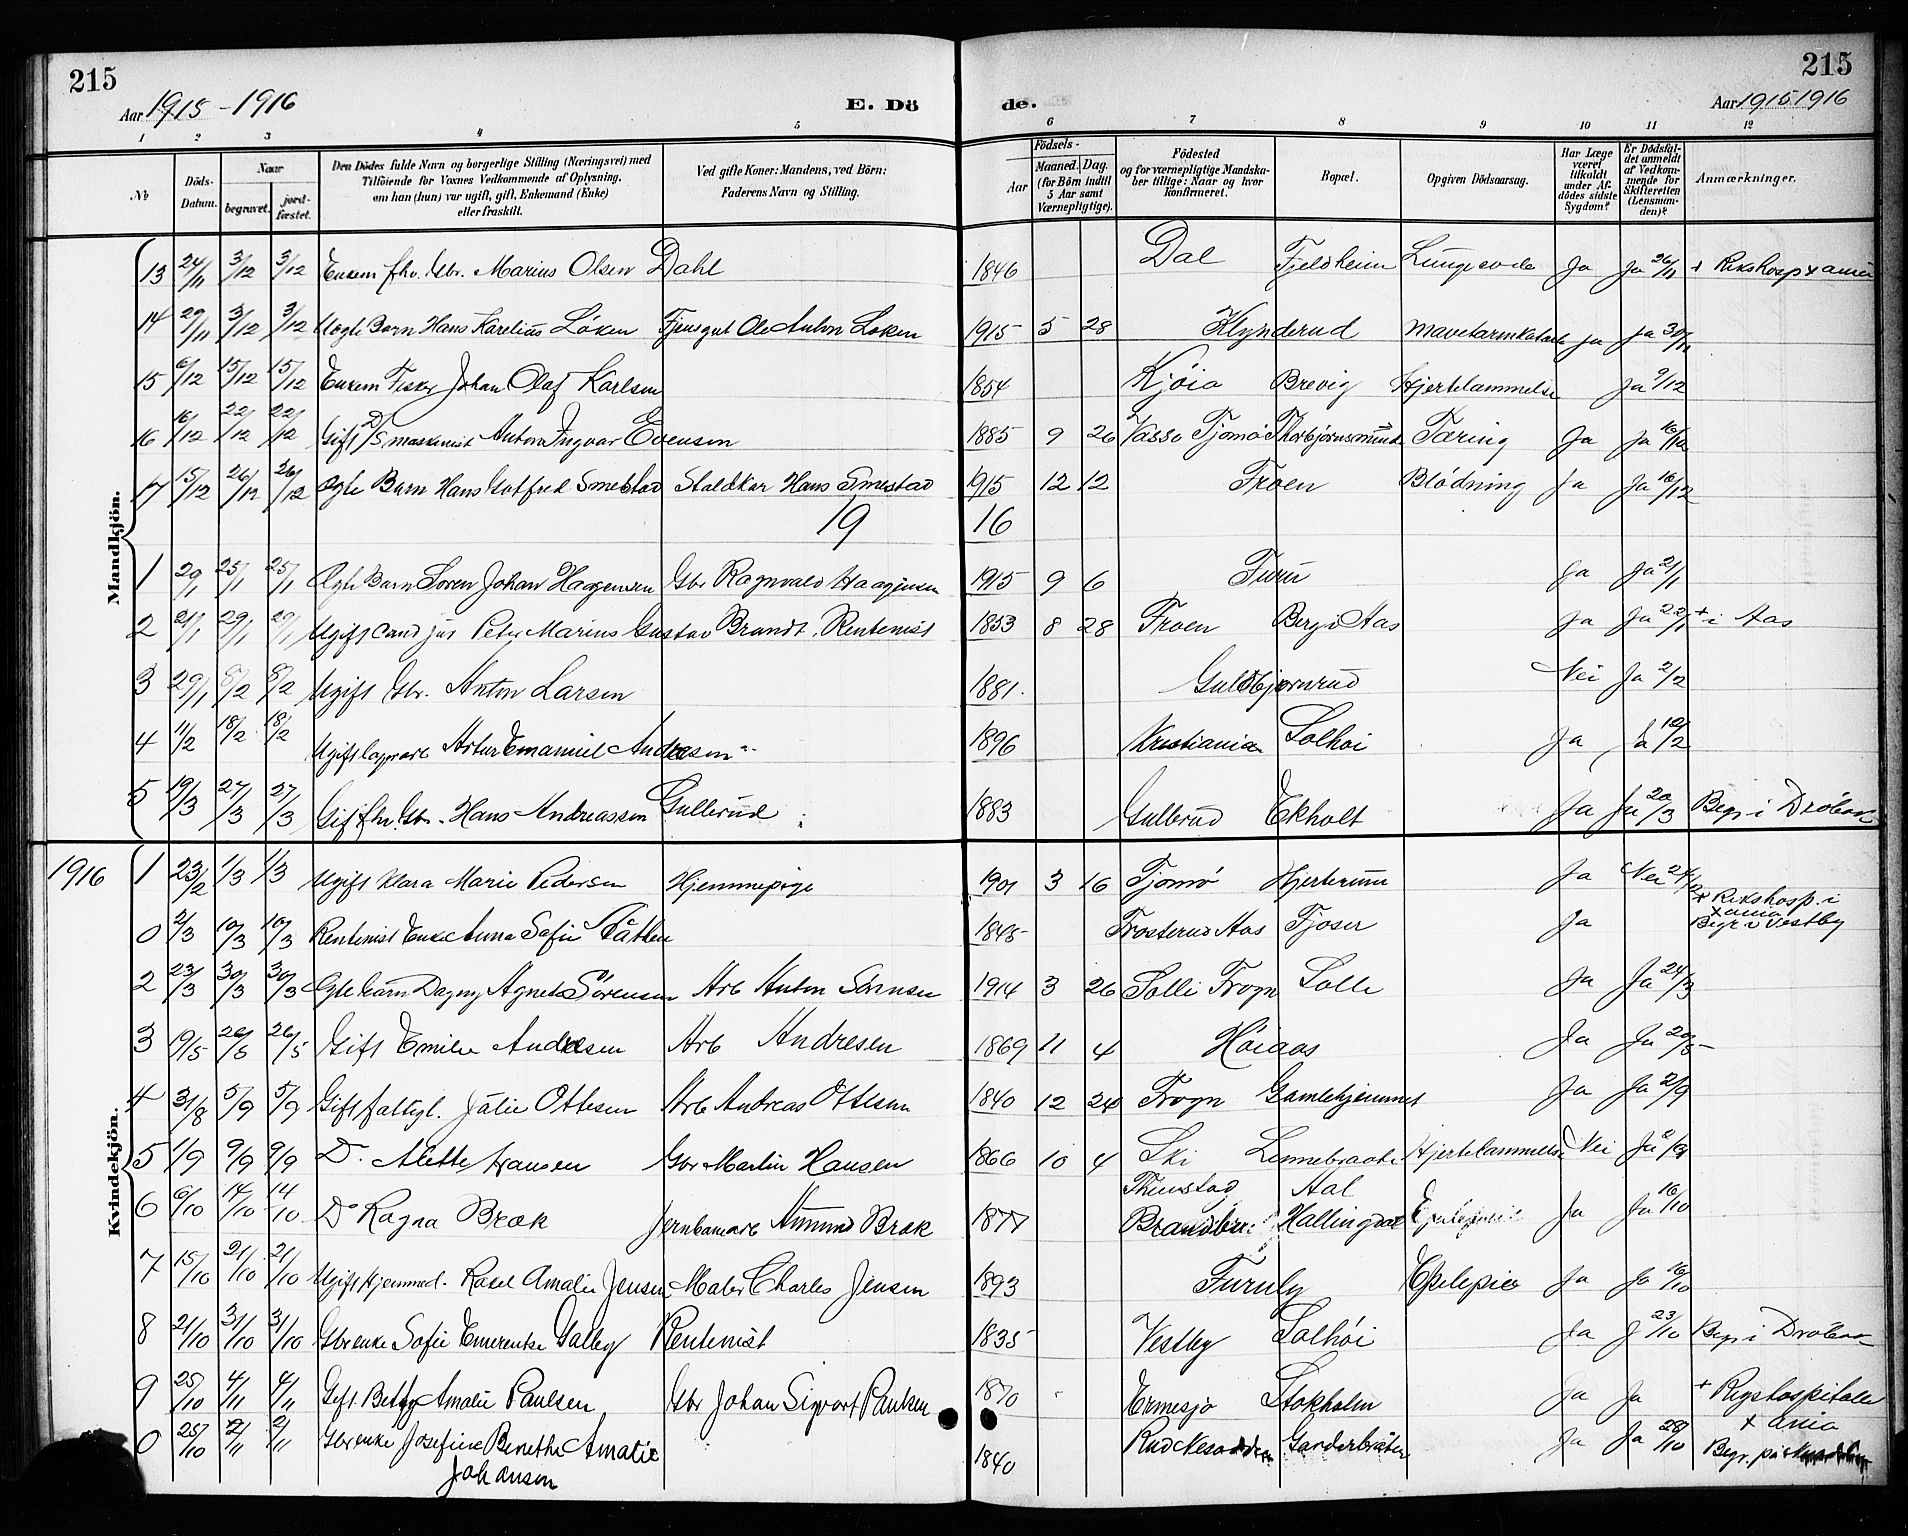 215
Aar 1915-1916
E. Dö
de.
Aar 1915 1916
215
1 2 3 4 5 6 7 8 9 10 11 12
No
Døds-Datum.
Naar begravet. jord-fæstet.
Den Dödes fulde Navn og borgerlige Stilling (Næringsvei) med Tilföiende for Voxnes Vedkommende af Oplysning, om han (hun) var ugift, gift, Enkemand (Enke) eller fraskilt.
Ved gifte Koner: Mandens, ved Börn: Faderens Navn og Stilling.
Födsels-
Aar
Maaned. Dag. (for Börn indtil 5 Aar samt Værnepligtige).
Födested og for værnepligtige Mandskaber tillige: Naar og hvor konfirmeret.
Bopæl.
Opgiven Dödsaarsag.
Har Læge været tilkaldt under Afdödes sidste Sygdom?
Er Dödsfaldet anmeldt af Vedkommende for Skifteretten (Lensmanden)?
Anmærkninger.
Mandkjön.
13 24/11 3/12 3/12 Enkem fhv. Gbr. Marius Olsen Dahl 1846 Dal Fjeldheim Ja Ja 26/11
14 29/11 3/12 3/12 Uegte Barn Hans Karelius Löken Ole Anton Loken 1915 5 28 Klynderud Ja Ja 30/11
15 6/12 15/12 15/12 Enkem Fisker Johan Olaf Karlsen 1854 Kjöia Brevig Hjertelammelse Ja 9/12
16 16/12 22/12 22/12 Gift D/S maskinist Anton Ingvar Evensen 1885 9 26 Vasso Tjomö Tæring Ja Ja
17 15/12 26/12 26/12 Ægte Barn Hans Gotfred Smestad Staldkar Hans Smestad 1915 12 12 Froen Blödning Ja Ja 16/12
19 16
1 20/1 25/1 25/1 Ægte Barn Soren Johan Haagensen Gbr Ragnvald Haagensen 1915 9 6 Furu Ja Ja 21/1
2 21/1 29/1 29/1 Ugift cand jur Peter Marius Gustav Brandt, Rentenist 1853 8 28 Froen Berg i Aas Ja Ja 22/1 + i Aas
3 29/1 8/2 8/2 Ugift Gbr. Anton Larsen 1881. Guldbjørnrud Nei Ja 2/2
4 11/2 18/2 18/2 Ugift Artur Emanuel Andresen 1896 Kristiania Solhøi Ja Ja 12/2
5 19/3 27/3 27/3 Gift fhv. Gbr. Hans Andreassen Gullerud 1883 Gullerud Ekholt Ja Ja 20/3 Begr i Dröbak
Kvindekjön.
1916 1 23/2 1/3 1/3 Ugift Klara Marie Pedersen Hjemmepige 1901 3 16 Tjomö Hjerterum Ja Nei + Rikshosp. i X ania
0 2/3 10/3 10/3 Rentenist Enke Anna Sofie 1845 Frosterud Aas Fjoser Ja Begr i Vestby
2 23/3 30/3 30/3 Ægte barn Dagny Agnete Sörensen Arb Anton Sörensen 1914 3 26 Solli Frogn Solli Ja Ja 24/3
3 19/5 26/5 26/5 Gift Emilie Andresen Arb Andresen 1869 11 4 Höiaas Ja Ja 20/5
4 31/8 5/9 5/9 Gift Julie Ottesen Arb Andreas Ottesen 1840 12 24 Frogn Gamlehjemmet Ja Ja 2/9
5 1/9 9/9 9/9 Do Alette Hansen Gbr Martin Hansen 1866 10 4 Ski Hjertelammelse Nei Ja 2/9
6 6/10 14/10 14/10 Do Ragna Bræk Jernbanearb Ammund Bræk 1877 Aal Hallingdal Ja Ja 16/10
7 15/10 21/10 21/10 Ugift Hjemmed. Amalie Jensen Maler Charles Jensen 1893 Furuly Epelepsie Ja Ja 16/10
8 21/10 31/10 31/10 Gbr enke Sofie Emerentse Rentenist 1835 Vestby Solhöi Ja J 23/10 Begr i Dröbak
9 25/10 4/11 4/11 Gift Betsy Amalie Paulsen Gbr Johan Sigvart Paulsen 1870 Ermesjo Stokholm Ja Ja + Rigshospitalet X ania
0 25/10 2/11 2/11 Gbr enke Josefine Benethe Amalie Johansen 1840 Rud Nesodden Garderbråten Ja Ja 28/10 Begr. på